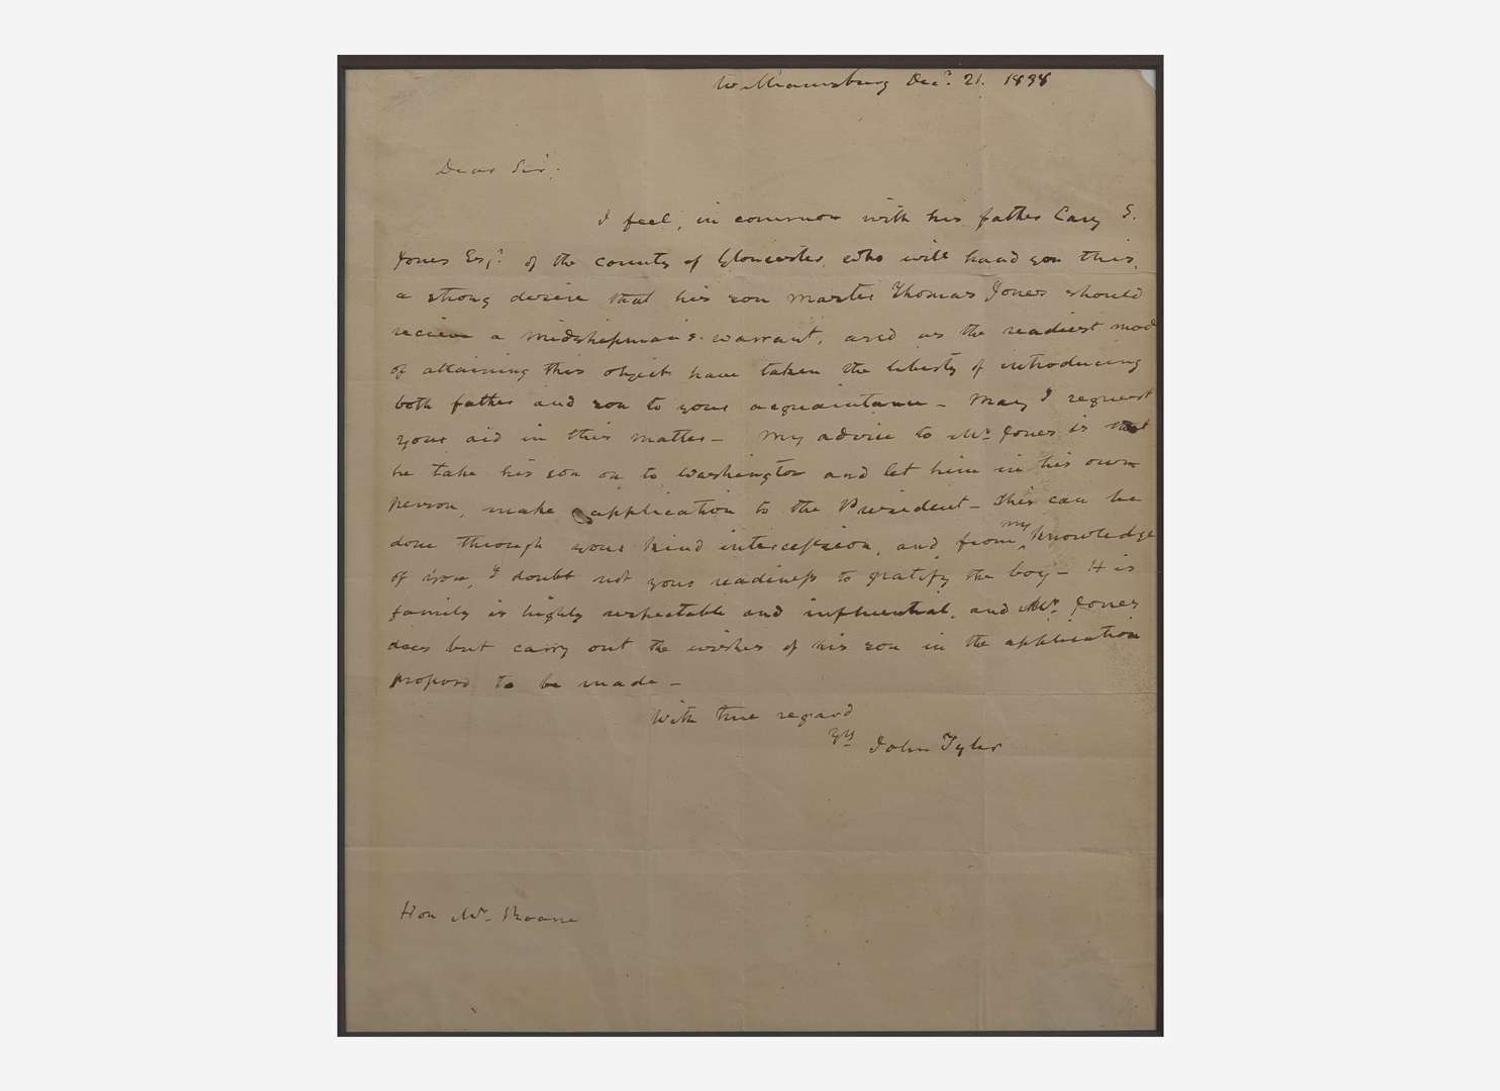 Williamsburg Decr. 21. 1838
Dear Sir,
I feel, in common with his father Cary S.
Jones Esqr. of the county of Gloucester, who will hand you this,
a strong desire that his son Master Thomas Jones should
recieve a midshipman's warrant, and as the readiest mode
of attaining this object have taken the liberty of introducing
both father and son to your acquaintance - May I request
your aid in this matter - My advice to Mr. Jones is that
he take his son on to Washington and let him in his own
person, make application to the President - This can be
done through your kind interception, and from my knowledge
of you, I doubt not your readiness to gratify the boy - His
family is highly respectable and influential, and Mr. Jones
does but carry out the wishes of his son in the application
proposd to be made -
With true regard
Yrs John Tyler
Hon Mr. Roane